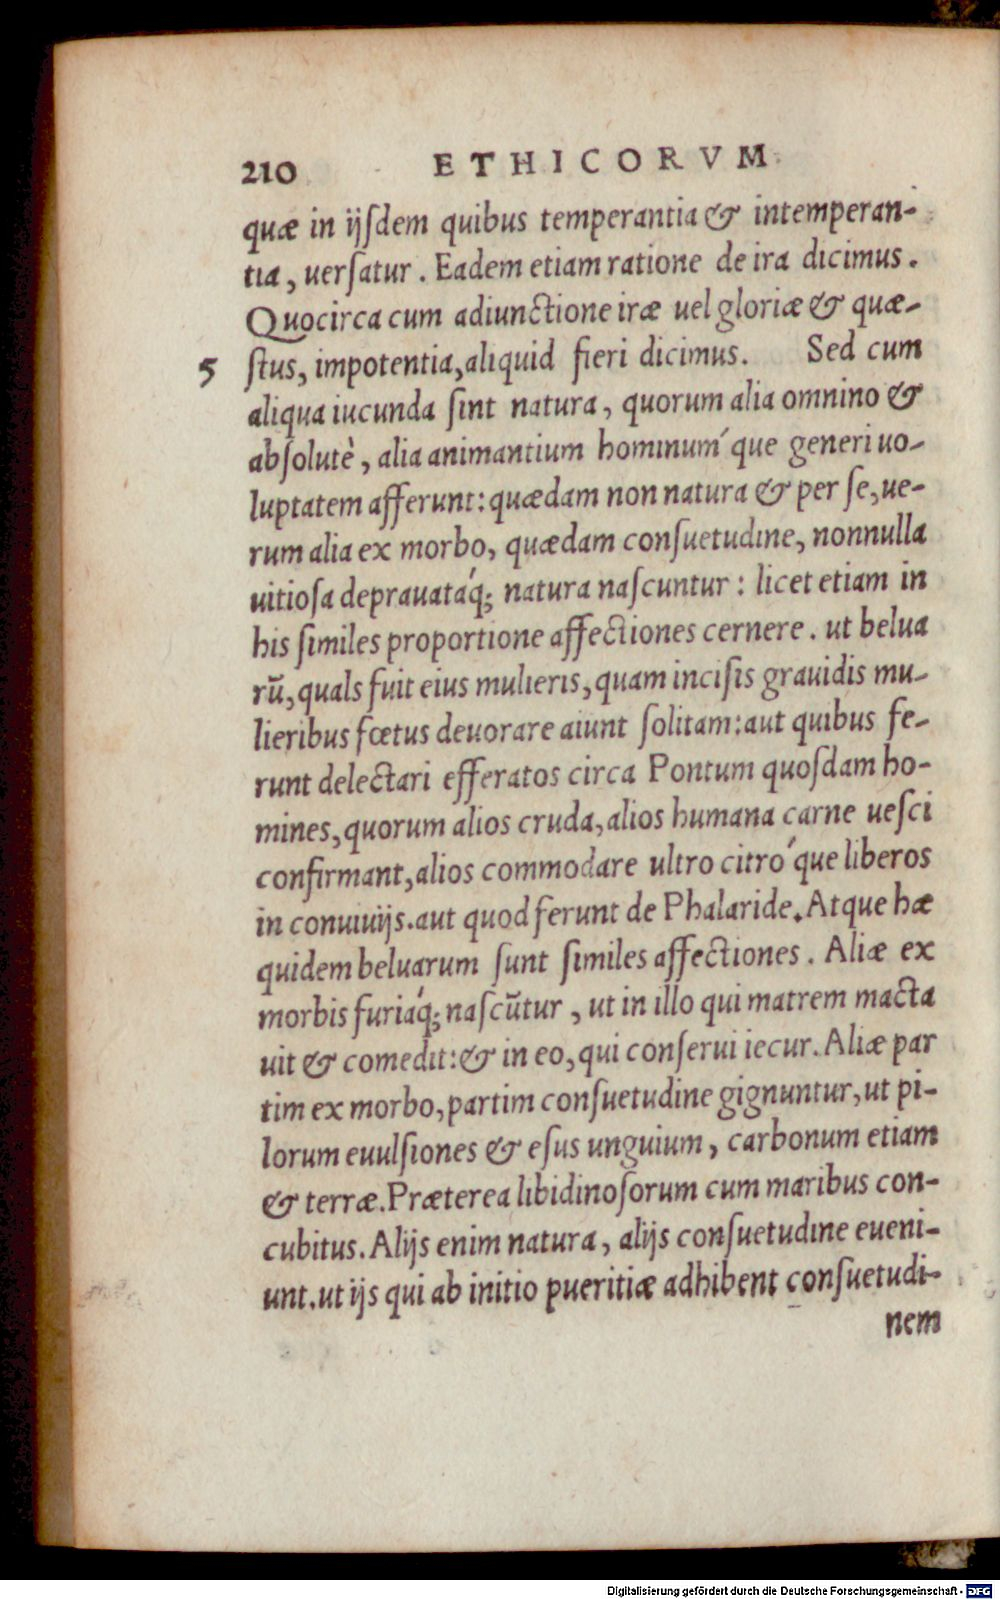 210 ETHICORVM
quæ in ijſdem quibus temperantia & intemperan-
tia, uerſatur. Eadem etiam ratione de ira dicimus.
Quocirca cum adiunctione iræ uel gloriæ & quæ-
5 ſtus, impotentia, aliquid fieri dicimus. Sed cum
aliqua iucunda ſint natura, quorum alia omnino &
abſolutè, alia animantium hominuḿ que generi uo-
luptatem afferunt: quædam non natura & per ſe, ue-
rum alia ex morbo, quædam conſuetudine, nonnulla
uitioſa deprauatáq; natura naſcuntur: licet etiam in
his ſimiles proportione affectiones cernere. ut belua
rũ, quals fuit eius mulieris, quam inciſis grauidis mu-
lieribus fœtus deuorare aiunt ſolitam: aut quibus fe-
runt delectari efferatos circa Pontum quoſdam ho-
mines, quorum alios cruda, alios humana carne ueſci
confirmant, alios commodare ultro citró que liberos
in conuiuijs. aut quod ferunt de Phalaride. Atque hæ
quidem beluarum ſunt ſimiles affectiones. Aliæ ex
morbis furiáq; naſcũtur, ut in illo qui matrem macta
uit & comedit: & in eo, qui conſerui iecur. Aliæ par
tim ex morbo, partim conſuetudine gignuntur, ut pi-
lorum euulſiones & eſus unguium, carbonum etiam
& terræ. Præterea libidinoſorum cum maribus con-
cubitus. Alijs enim natura, alijs conſuetudine eueni-
unt. ut ijs qui ab initio pueritiæ adhibent conſuetudi-
nem
Digitalisierung gefördert durch die Deutsche Forschungsgemeinschaft - DFG